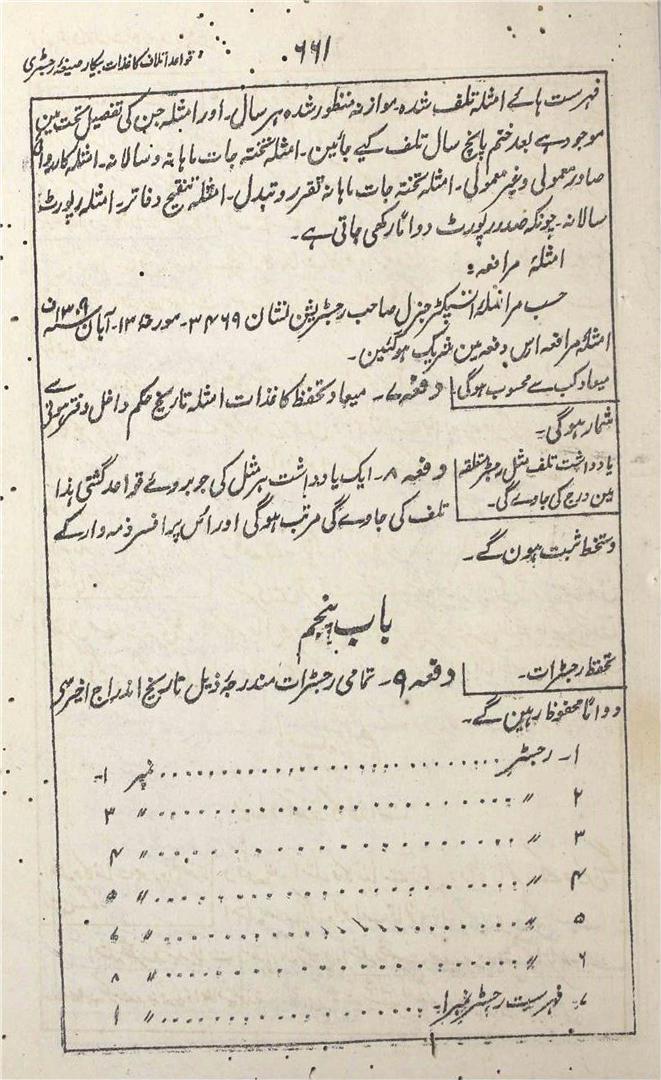 ۶۶۱
قواعد اتلاف کاغذات بیکار صیغۂ رجسٹری
فہرست ہائے امثلہ تلف شدہ۔ موازنہ منظور شدہ ہر سال۔ اور امثلہ جن کی تفصیل تحت مین
موجود ہے بعد ختم پانچ سال تلف کیے جائین۔ امثلہ تختہ جات ماہانہ و سالانہ۔ امثلہ کارروائی
صادر معمولی و غیر معمولی۔ امثلہ تختہ جات ماہانہ تقرر و تبدل۔ امثلہ تنقیح دفاتر۔ امثلہ رپورٹ
سالانہ۔ چونکہ صدر رپورٹ دواماً رکھی جاتی ہے۔
امثلۂ مرافعہ:
حسب مراسلہ انسپکٹر جنرل صاحب رجسٹریشن نشان ۳۴۶۹۔ مورخہ ۱۳۔ آبان ۱۳۰۹ ف
امثلہ مرافعہ اس دفعہ مین شریک ہوگئین۔
میعاد کب سے محسوب ہوگی
دفعہ ۷۔ میعاد تحفظ کاغذات امثلہ تاریخ حکم داخل دفتر ہونے سے
شمار ہوگی۔
یادداشت تلف مثل رجسٹر متعلقہ
مین درج کی جاوے گی۔
دفعہ ۸۔ ایک یادداشت ہر مثل کی جو بروئے قواعد گشتی ہذا
تلف کی جاوے گی مرتب ہوگی اور اس پر افسر ذمہ دار کے
دستخط ثبت ہون گے۔
باب پنجم
تحفظ رجسٹرات۔
دفعہ ۹۔ تمامی رجسٹرات مندرجہ ذیل تاریخ اندراج اخیر سے
دواماً محفوظ رہین گے۔
۱۔ رجسٹر .......... نمبر ۱۔
۲ " .......... " ۳
۳ " .......... " ۴
۴ " .......... " ۵
۵ " .......... " ۶
۶ " .......... " ۸
۷۔ فہرست رجسٹر نمبر ۱۔ .......... " ۱